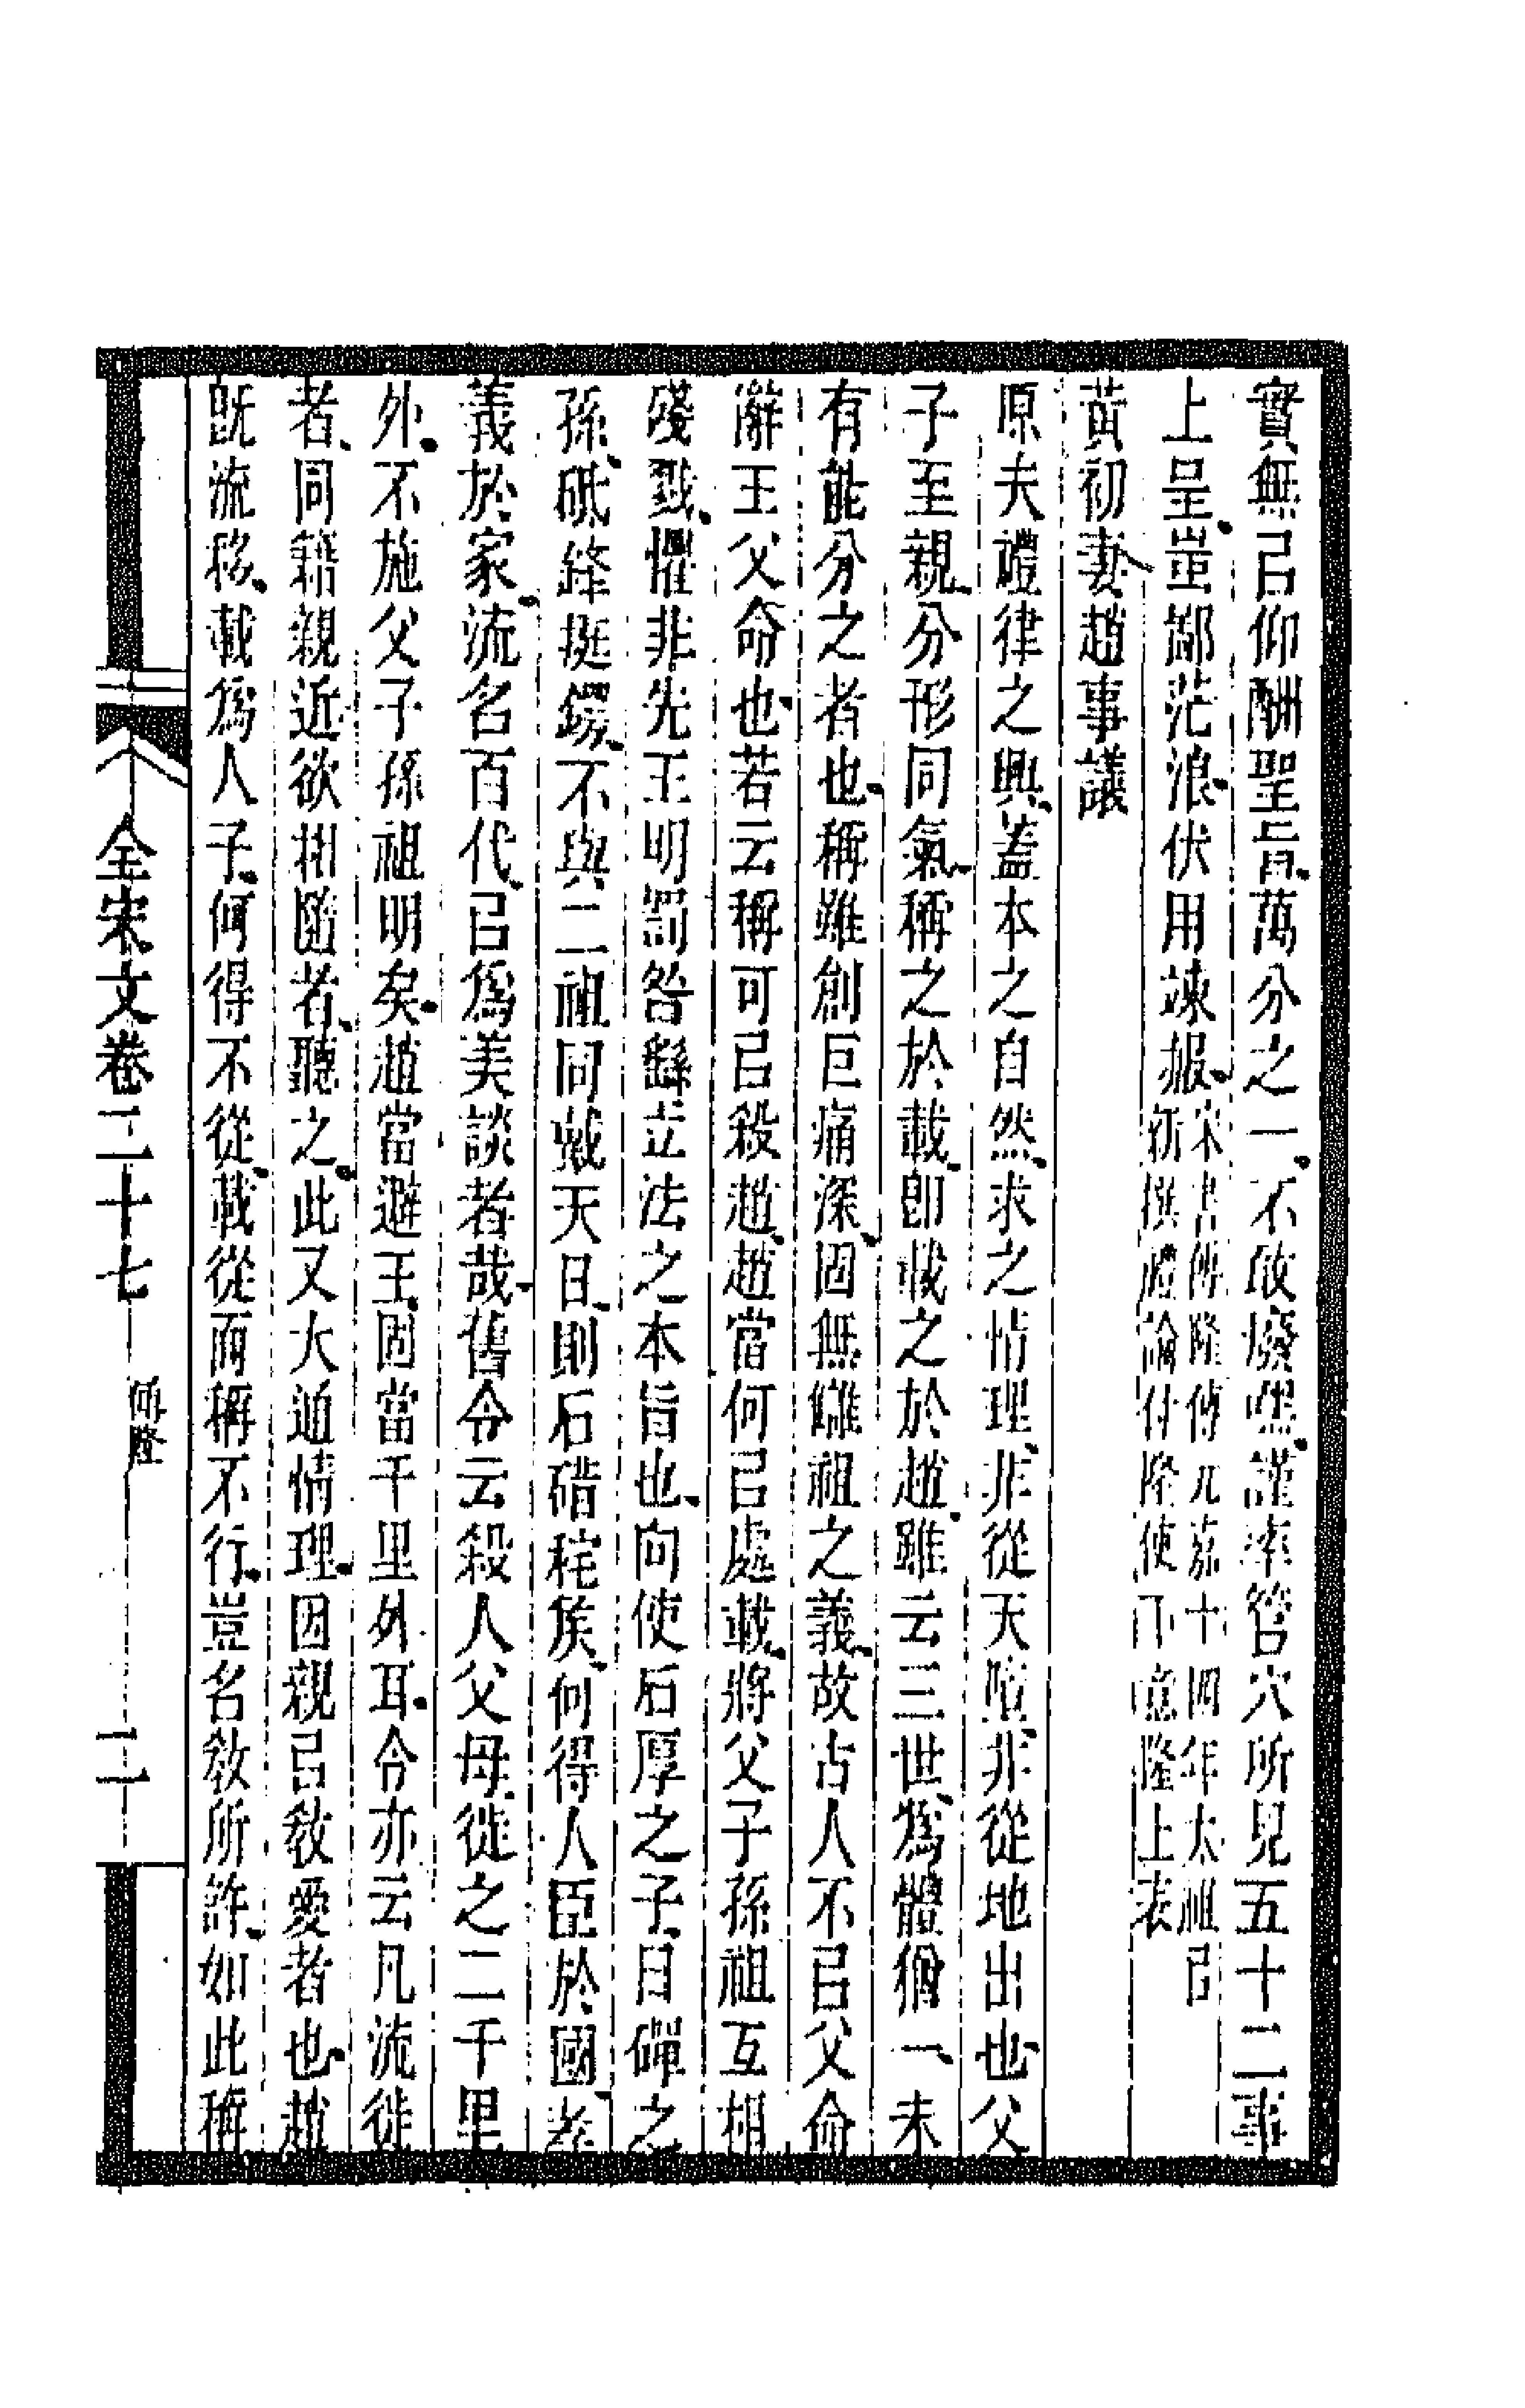 實無㠯仰酬聖旨萬分之一不敢廢嘿謹率管穴所見五十二事
上呈蚩鄙茫浪伏用竦赧宋書傅隆傳元嘉十四年太祖㠯
新撰禮論付隆使下意隆上表
黃初妻趙事議
原夫禮律之興蓋本之自然求之情理非從天墮非從地出也父
子至親分形同氣稱之於載卽載之於趙雖云三世爲體猶一未
有能分之者也稱雖創巨痛深固無讎祖之義故古人不㠯父命
辭王父命也若云稱可㠯殺趙趙當何㠯處載將父子孫祖互相
殘戮懼非先王明罰咎繇立法之本旨也向使石厚之子日磾之
孫砥鋒挺鍔不與二祖同戴天日則石碏秺侯何得人臣於國孝
義於家流名百代㠯爲美談者哉舊令云殺人父母徙之二千里
外不施父子孫祖明矣趙當避王固當千里外耳令亦云凡流徙
者同籍親近欲相隨者聽之此又大通情理因親㠯教愛者也趙
旣流移載爲人子何得不從載從而稱不行豈名教所許如此稱
全宋文卷二十七
傅隆
二